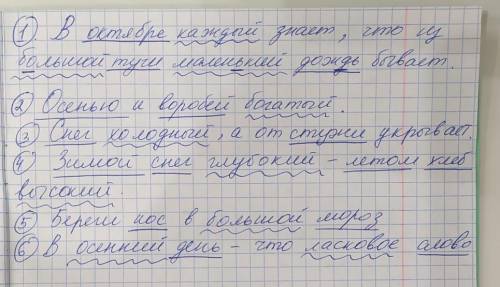 ① В октябре каждый знает, что из
большой тучи маленький дождь бывает.
② Осенью и воробей богатый.
③ Снег холодный, а от стужи укрывает.
④ Зимой снег глубокий – летом хлеб
высокий.
⑤ Береги нос в большой мороз
⑥ В осенний день – что ласковое слово